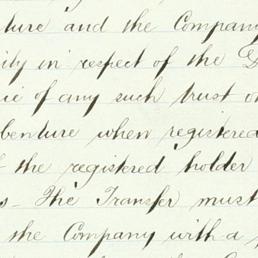 ture and the Company
ity in respect of the
ue of any such trust or
benture when registered
the registered holder
s - The Transfer must
the Company with a